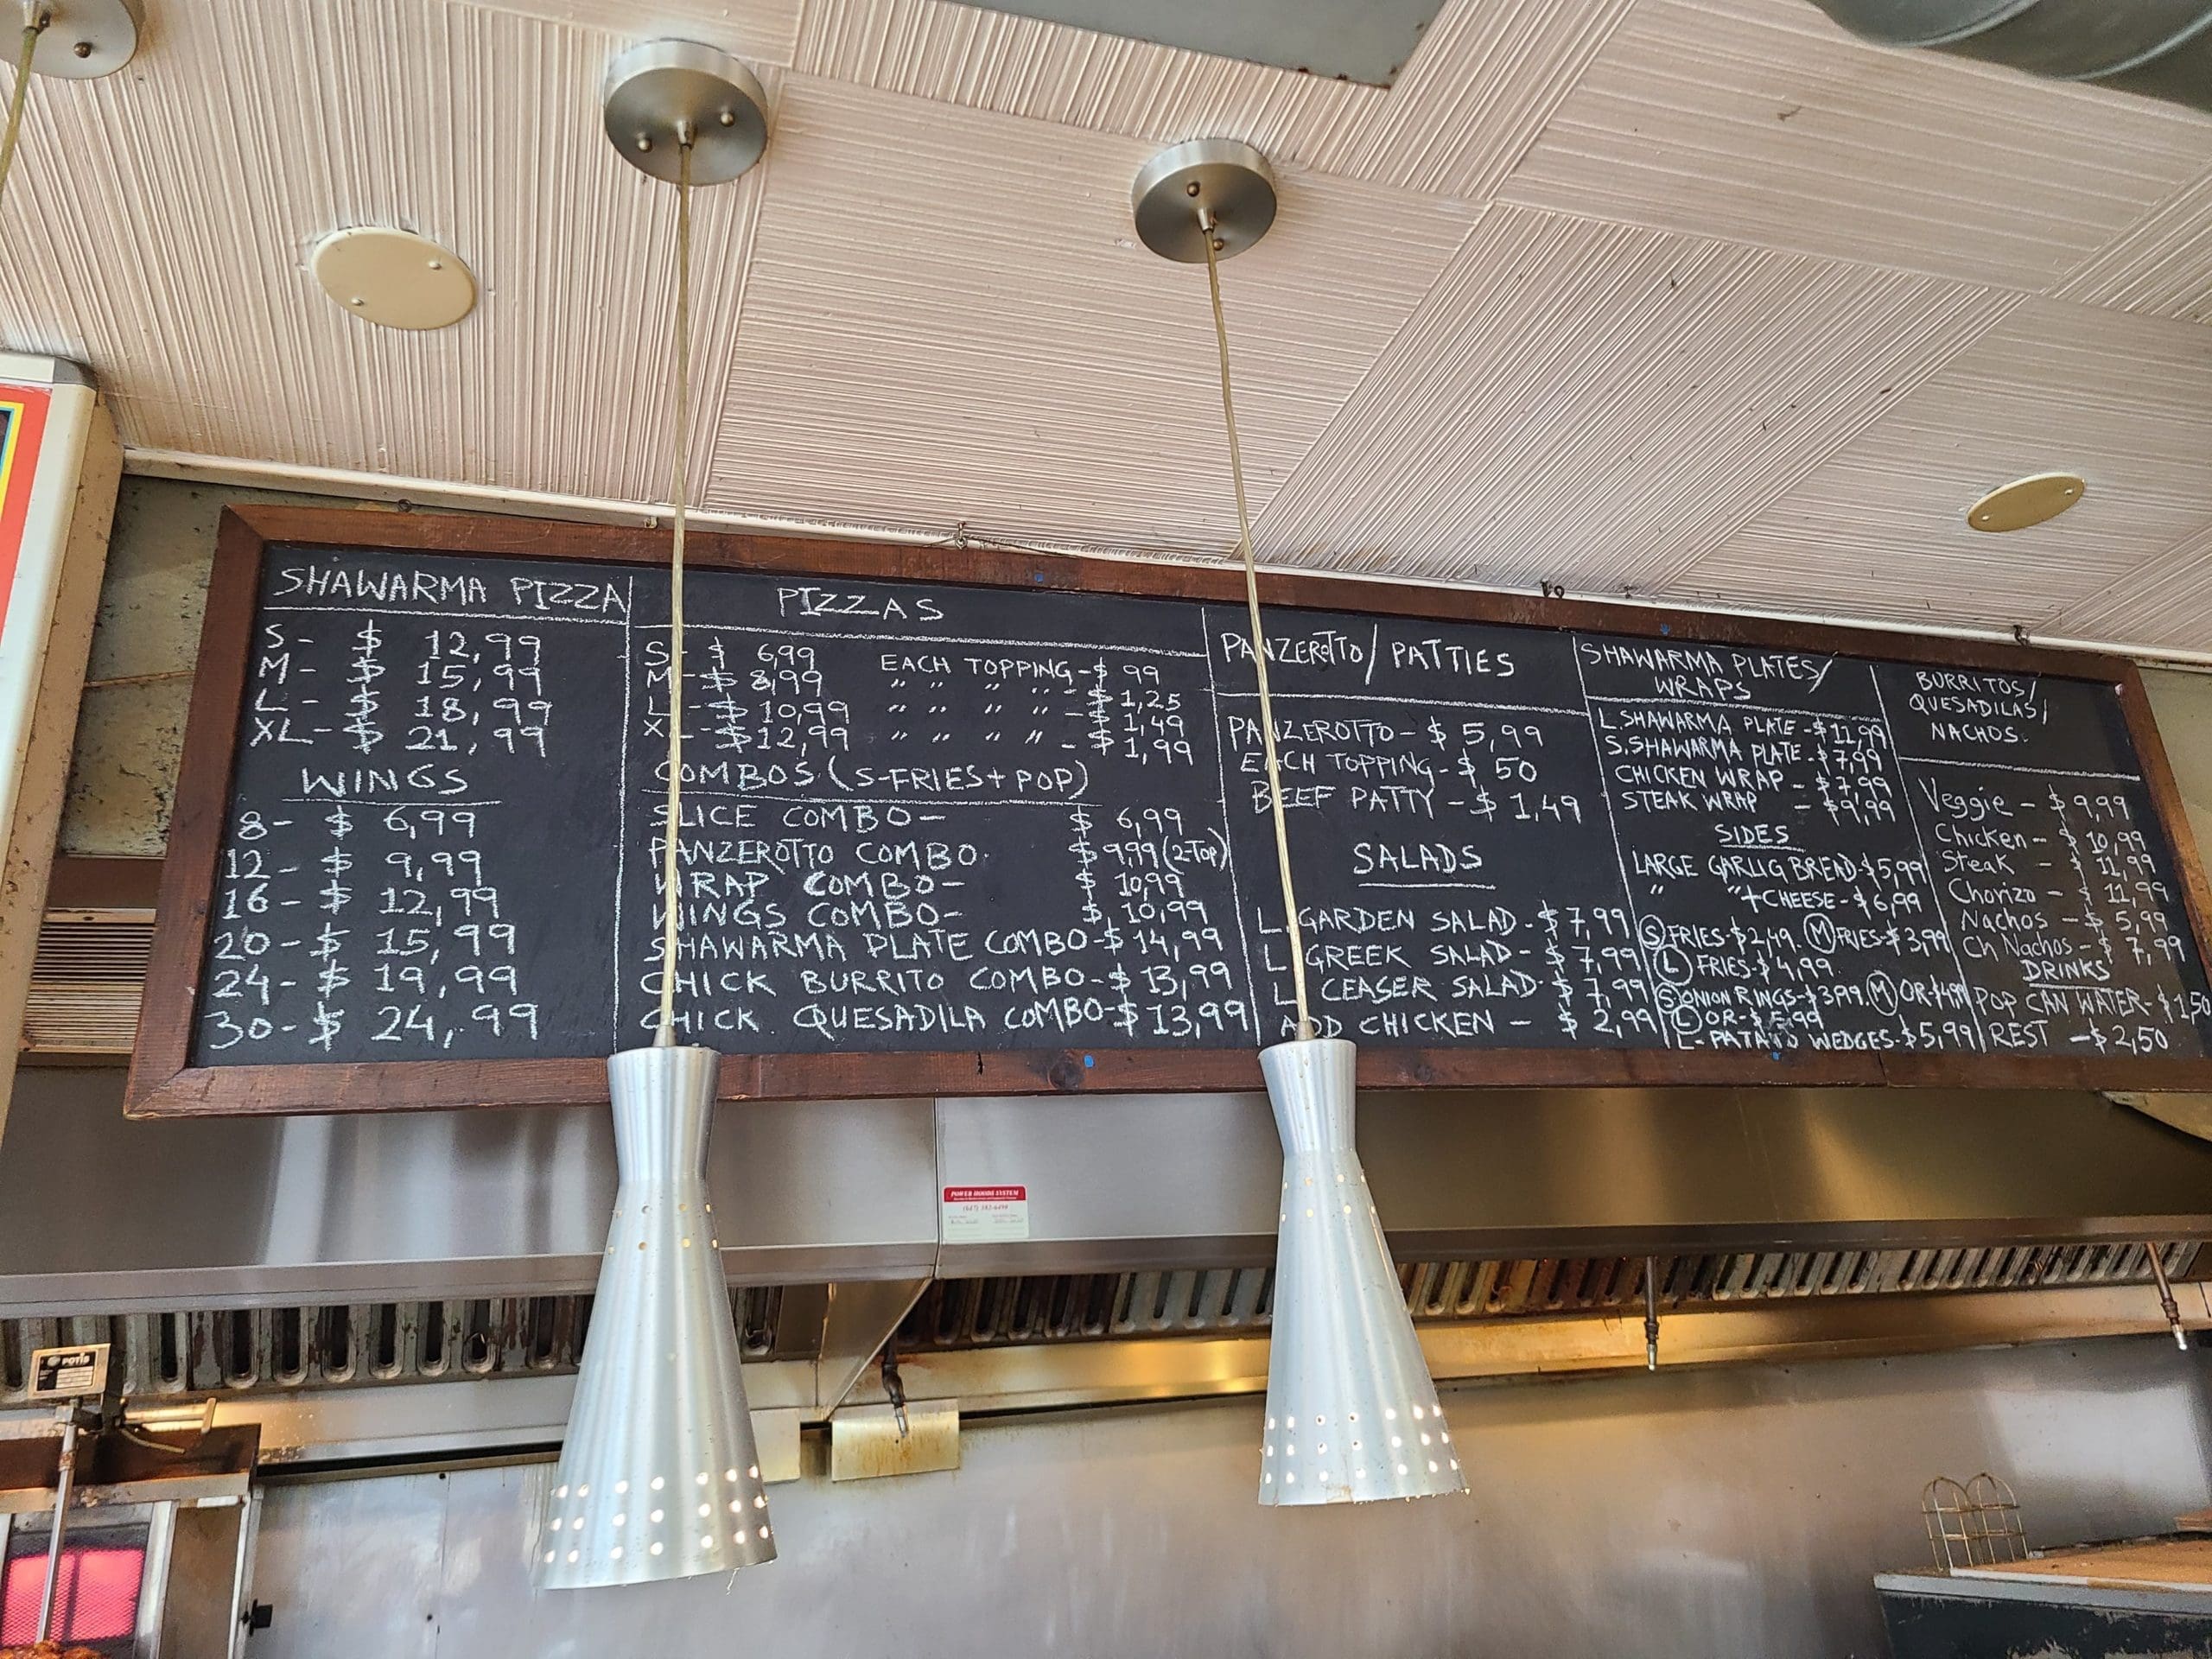 SHAWARMA PIZZA
S- $ 12,99
M- $ 15,99
L- $ 18,99
XL- $ 21,99
WINGS
8- $ 6,99
12- $ 9,99
16- $ 12,99
20- $ 15,99
24- $ 19,99
30- $ 24,99
PIZZAS
S- $ 6,99 EACH TOPPING-$ 99
M-$ 8,99 " " " " -$ 1,25
L-$ 10,99 " " " " -$ 1,49
X-$12,99 " " " " -$ 1,99
COMBOS (S-FRIES+POP)
SLICE COMBO- $ 6,99
PANZEROTTO COMBO- $9,99(2-TOP)
WRAP COMBO- $ 10,99
WINGS COMBO- $ 10,99
SHAWARMA PLATE COMBO-$ 14,99
CHICK BURRITO COMBO-$ 13,99
CHICK. QUESADILA COMBO-$ 13,99
PANZEROTTO/ PATTIES
PANZEROTTO-$ 5,99
EACH TOPPING-$, 50
BEEF PATTY -$ 1,49
SALADS
L.GARDEN SALAD-$7,99
L GREEK SALAD-$7,99
L CEASER SALAD-$7,99
ADD CHICKEN - $ 2,99
SHAWARMA PLATES/
WRAPS
L.SHAWARMA PLATE-$11,99
S.SHAWARMA PLATE-$7,99
CHICKEN WRAP -$7,99
STEAK WRAP -$9,99
SIDES
LARGE GARLIG BREAD-$5,99
" "+CHEESE-$6,99
S FRIES-$2,49. M FRIES-$3,99
L FRIES-$4,99
S ONION RINGS-$3,99. M OR-$4,99
L OR-$5,99
L- PATATO WEDGES-$5,99
BURRITOS/
QUESADILAS/
NACHOS.
Veggie - $9,99
Chicken-$10,99
Steak - $11,99
Chorizo - $11,99
Nachos -$5,99
Ch Nachos-$7,99
DRINKS
POP CAN WATER-$1,50
REST -$2,50
POWER HOODS SYSTEM
POTIS